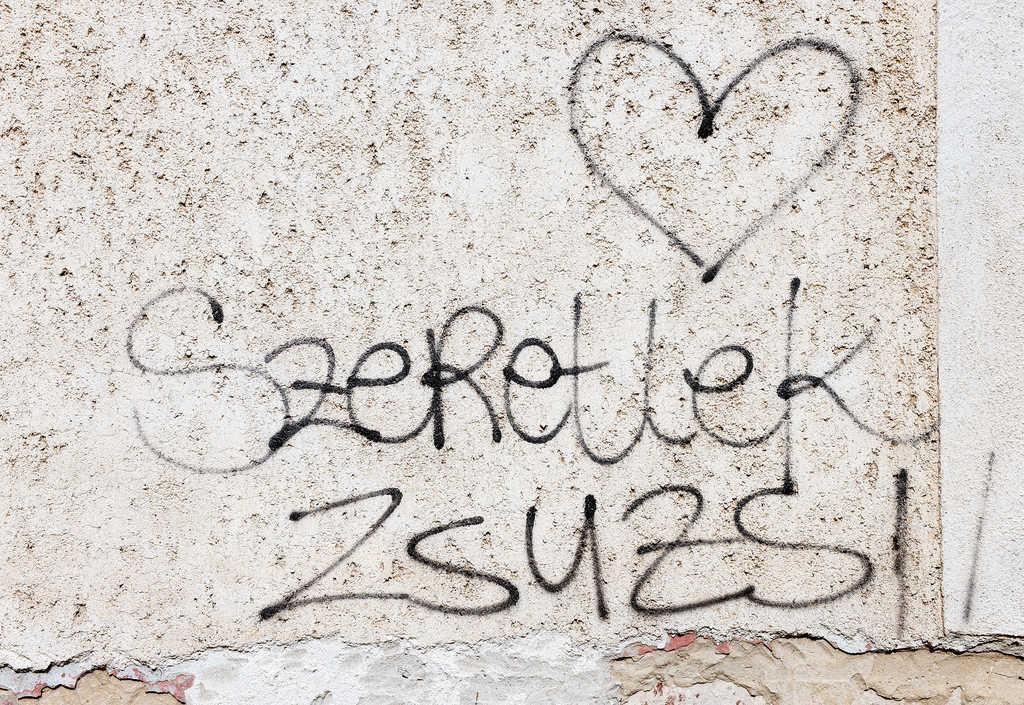 Szeretlek
Zsuzsi!